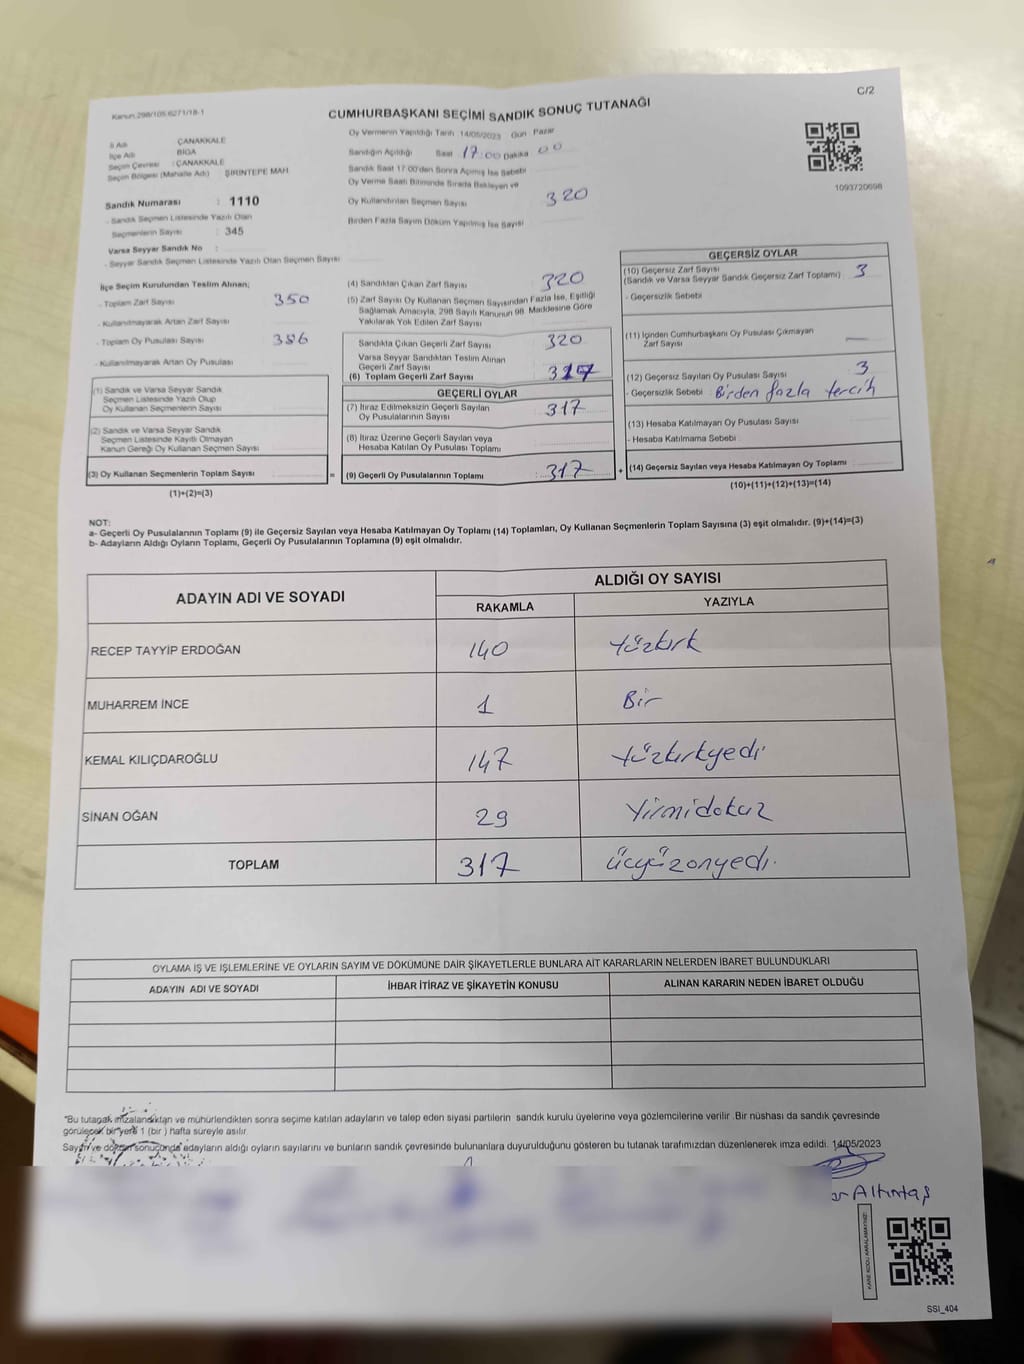 Kanun:298/105:6271/18-1
C/2
CUMHURBAŞKANI SEÇİMİ SANDIK SONUÇ TUTANAĞI
İl Adı ÇANAKKALE
İlçe Adı BİGA
Seçim Çevresi : ÇANAKKALE
Seçim Bölgesi (Mahalle Adı) ŞİRİNTEPE MAH.
Sandık Numarası : 1110
- Sandık Seçmen Listesinde Yazılı Olan
Seçmenlerin Sayısı : 345
Varsa Seyyar Sandık No :
- Seyyar Sandık Seçmen Listesinde Yazılı Olan Seçmen Sayısı
Oy Vermenin Yapıldığı Tarih 14/05/2023 Gün Pazar
Sandığın Açıldığı Saat 17:00 Dakika 00
Sandık Saat 17:00'den Sonra Açılmış İse Sebebi
Oy Verme Saati Bitiminde Sırada Bekleyen ve
Oy Kullandırılan Seçmen Sayısı 320
Birden Fazla Sayım Döküm Yapılmış İse Sayısı
1093720698
İlçe Seçim Kurulundan Teslim Alınan;
- Toplam Zarf Sayısı 350
- Kullanılmayarak Artan Zarf Sayısı
- Toplam Oy Pusulası Sayısı 386
- Kullanılmayarak Artan Oy Pusulası
(1) Sandık ve Varsa Seyyar Sandık
Seçmen Listesinde Yazılı Olup
Oy Kullanan Seçmenlerin Sayısı
(2) Sandık ve Varsa Seyyar Sandık
Seçmen Listesinde Kayıtlı Olmayan
Kanun Gereği Oy Kullanan Seçmen Sayısı
(3) Oy Kullanan Seçmenlerin Toplam Sayısı =
(1)+(2)=(3)
(4) Sandıktan Çıkan Zarf Sayısı 320
(5) Zarf Sayısı Oy Kullanan Seçmen Sayısından Fazla İse, Eşitliği
Sağlamak Amacıyla, 298 Sayılı Kanunun 98. Maddesine Göre
Yakılarak Yok Edilen Zarf Sayısı
Sandıkta Çıkan Geçerli Zarf Sayısı 320
Varsa Seyyar Sandıktan Teslim Alınan
Geçerli Zarf Sayısı
(6) Toplam Geçerli Zarf Sayısı 317
GEÇERLİ OYLAR
(7) İtiraz Edilmeksizin Geçerli Sayılan
Oy Pusulalarının Sayısı 317
(8) İtiraz Üzerine Geçerli Sayılan veya
Hesaba Katılan Oy Pusulası Toplamı
(9) Geçerli Oy Pusulalarının Toplamı 317 +
GEÇERSİZ OYLAR
(10) Geçersiz Zarf Sayısı 3
(Sandık ve Varsa Seyyar Sandık Geçersiz Zarf Toplamı)
- Geçersizlik Sebebi
(11) İçinden Cumhurbaşkanı Oy Pusulası Çıkmayan
Zarf Sayısı —
(12) Geçersiz Sayılan Oy Pusulası Sayısı 3
- Geçersizlik Sebebi Birden fazla tercih
(13) Hesaba Katılmayan Oy Pusulası Sayısı
- Hesaba Katılmama Sebebi
(14) Geçersiz Sayılan veya Hesaba Katılmayan Oy Toplamı
(10)+(11)+(12)+(13)=(14)
NOT:
a- Geçerli Oy Pusulalarının Toplamı (9) ile Geçersiz Sayılan veya Hesaba Katılmayan Oy Toplamı (14) Toplamları, Oy Kullanan Seçmenlerin Toplam Sayısına (3) eşit olmalıdır. (9)+(14)=(3)
b- Adayların Aldığı Oyların Toplamı, Geçerli Oy Pusulalarının Toplamına (9) eşit olmalıdır.
ADAYIN ADI VE SOYADI
ALDIĞI OY SAYISI
RAKAMLA YAZIYLA
RECEP TAYYİP ERDOĞAN 140 Yüzkırk
MUHARREM İNCE 1 Bir
KEMAL KILIÇDAROĞLU 147 Yüzkırkyedi
SİNAN OĞAN 29 Yirmidokuz
TOPLAM 317 Üçyüzonyedi.
OYLAMA İŞ VE İŞLEMLERİNE VE OYLARIN SAYIM VE DÖKÜMÜNE DAİR ŞİKAYETLERLE BUNLARA AİT KARARLARIN NELERDEN İBARET BULUNDUKLARI
ADAYIN ADI VE SOYADI İHBAR İTİRAZ VE ŞİKAYETİN KONUSU ALINAN KARARIN NEDEN İBARET OLDUĞU
"Bu tutanak imzalandıktan ve mühürlendikten sonra seçime katılan adayların ve talep eden siyasi partilerin sandık kurulu üyelerine veya gözlemcilerine verilir. Bir nüshası da sandık çevresinde
görülecek bir yere 1 (bir) hafta süreyle asılır.
Sayım ve döküm sonucunda adayların aldığı oyların sayılarını ve bunların sandık çevresinde bulunanlara duyurulduğunu gösteren bu tutanak tarafımızdan düzenlenerek imza edildi. 14/05/2023
Altıntaş
KARE KODU KARALAMAYINIZ!
SSİ_404